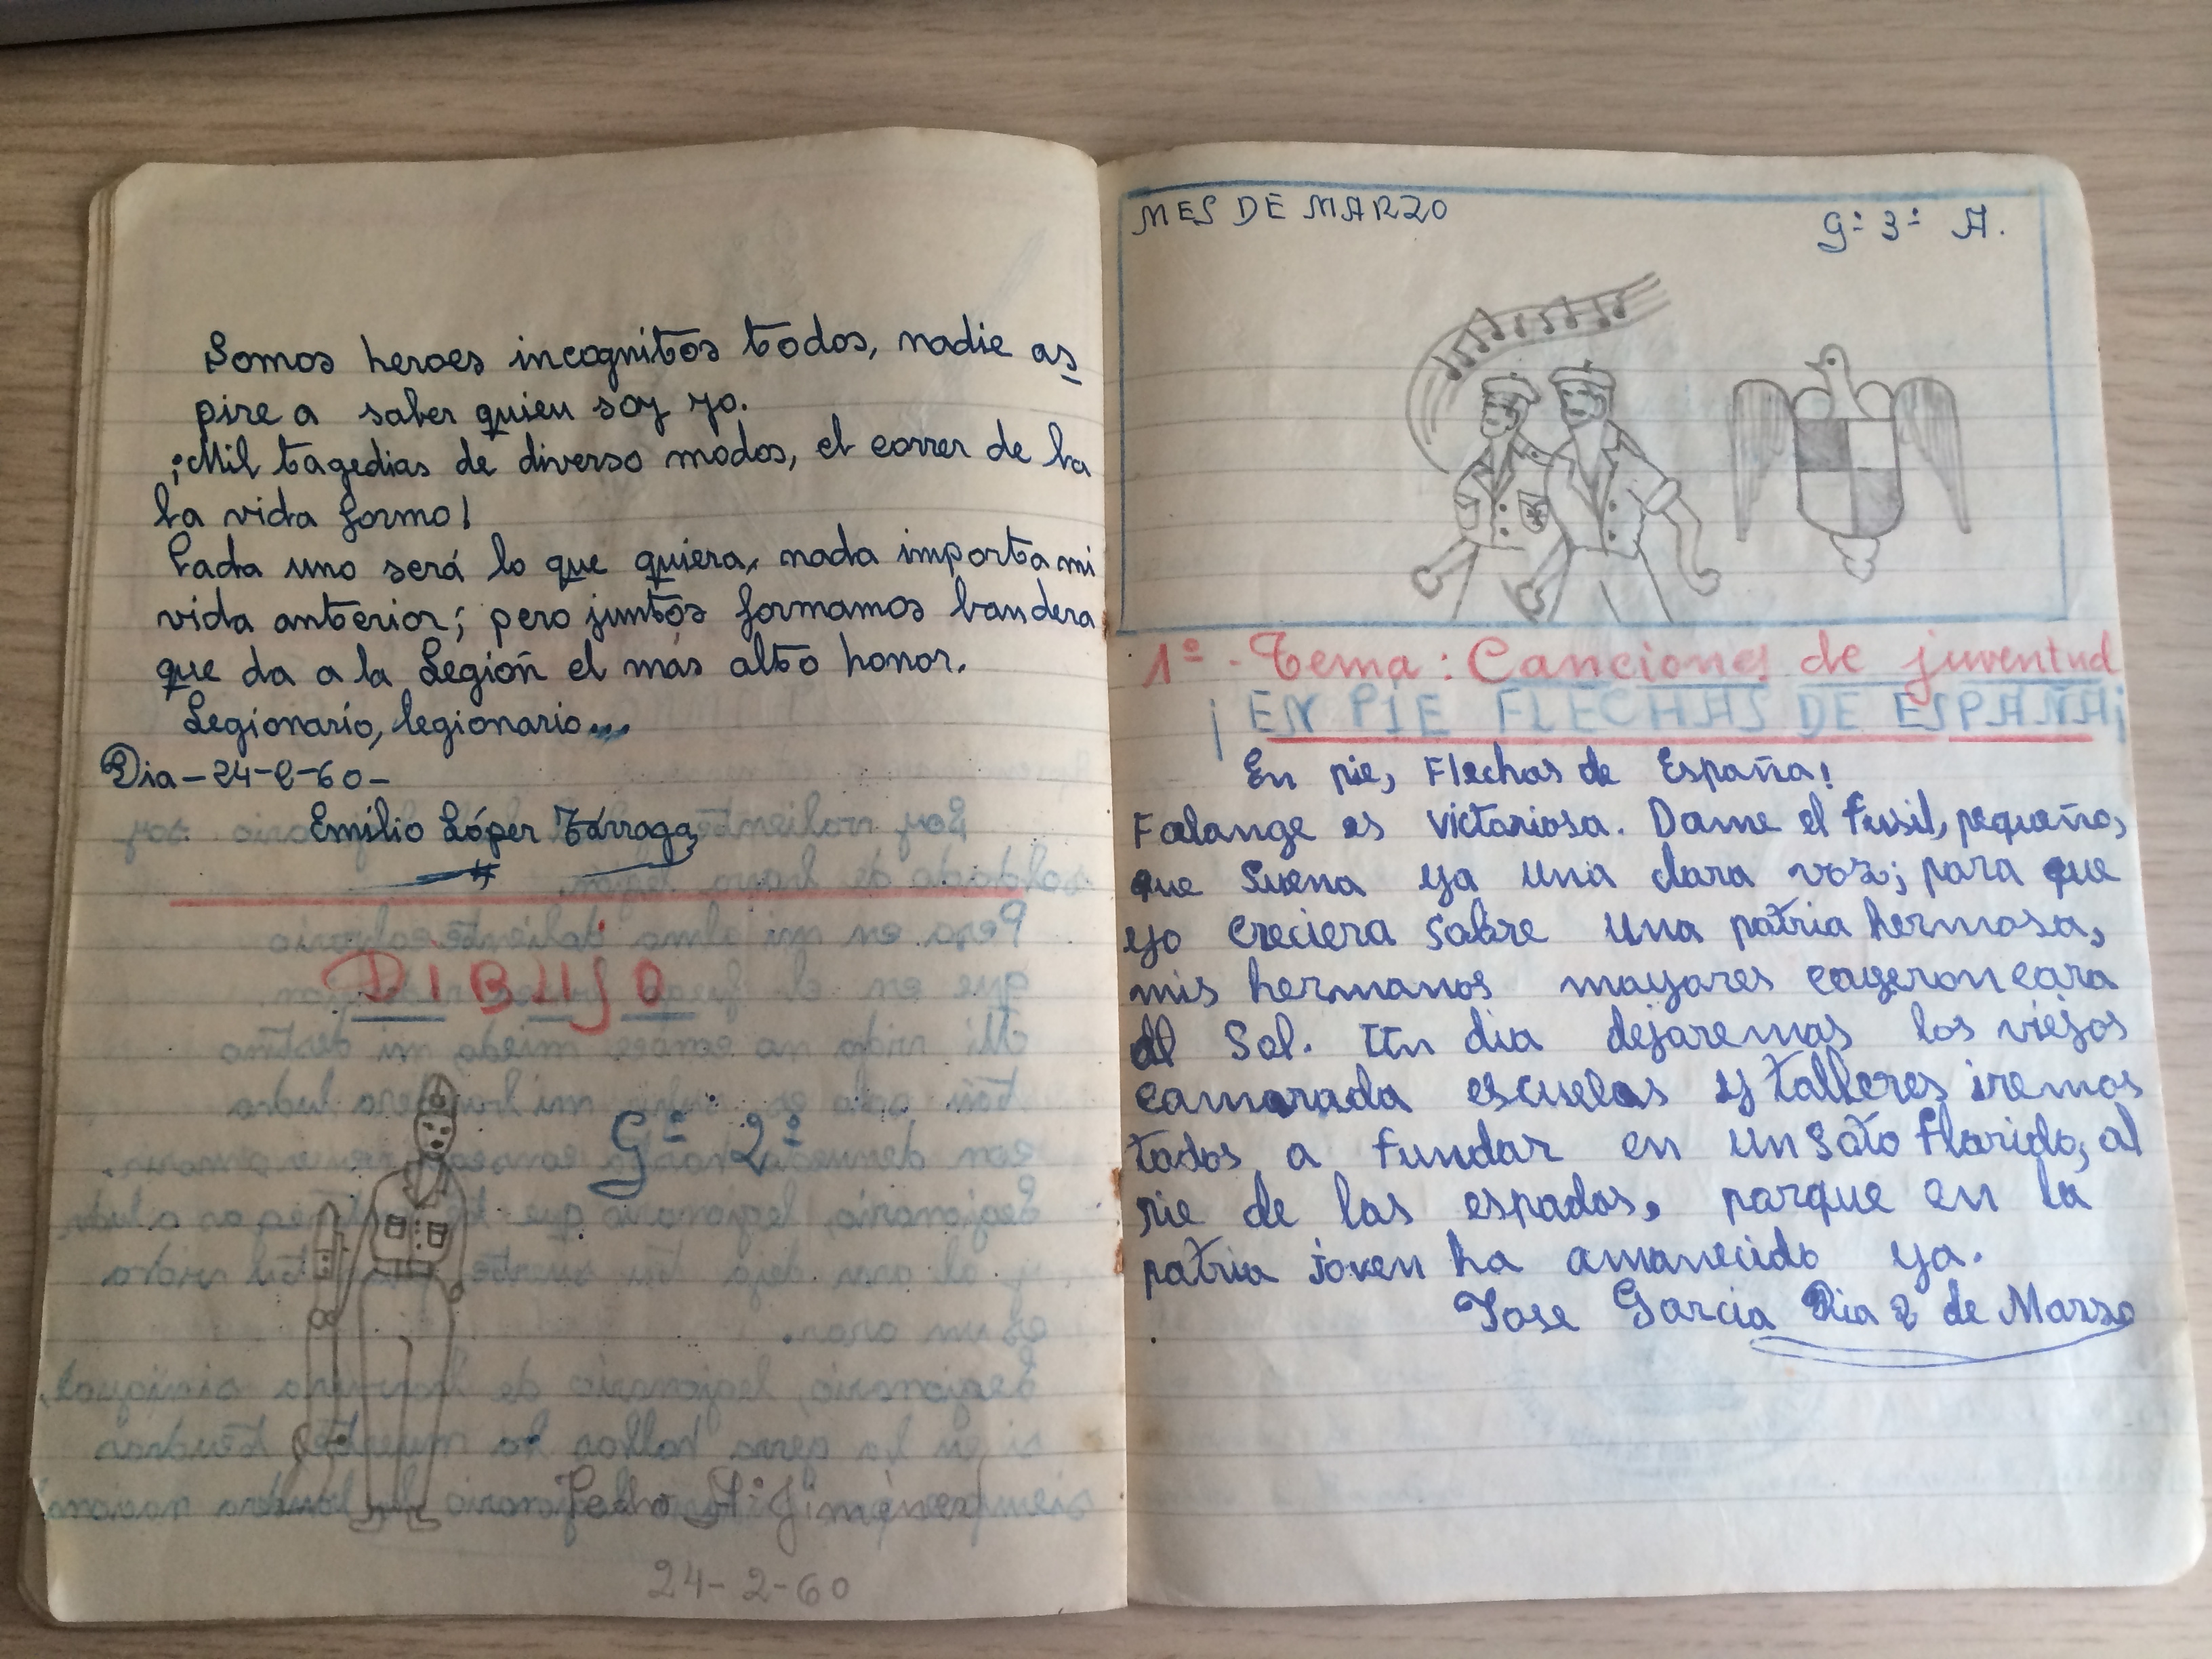 Somos heroes incognitos todos, nadie as
pire a saber quien soy yo.
¡Mil tagedias de diverso modos, el correr de la
la vida formo!
Cada uno será lo que quiera, nada importa mi
vida anterior; pero juntos formamos bandera
que da a la Legión el más alto honor.
Legionario, legionario...
Dia-24-2-60-
Emilio López Tárraga
DIBUJO
Gº 2º
Pedro Aº Jiménez
24-2-60
MES DE MARZO
Gº 3º A.
1º-Tema: Canciones de juventud
¡EN PIE FLECHAS DE ESPAÑA¡
En pie, Flechas de España!
Falange es victoriosa. Dame el fusil, pequeño,
que suena ya una clara voz; para que
yo creciera sobre una patria hermosa,
mis hermanos mayores cayeron cara
al Sol. Un dia dejaremos los viejos
camarada escuelas y talleres iremos
todos a fundar en un soto florido, al
pie de las espadas, porque en la
patria joven ha amanecido ya.
Jose Garcia Dia 2 de Marzo